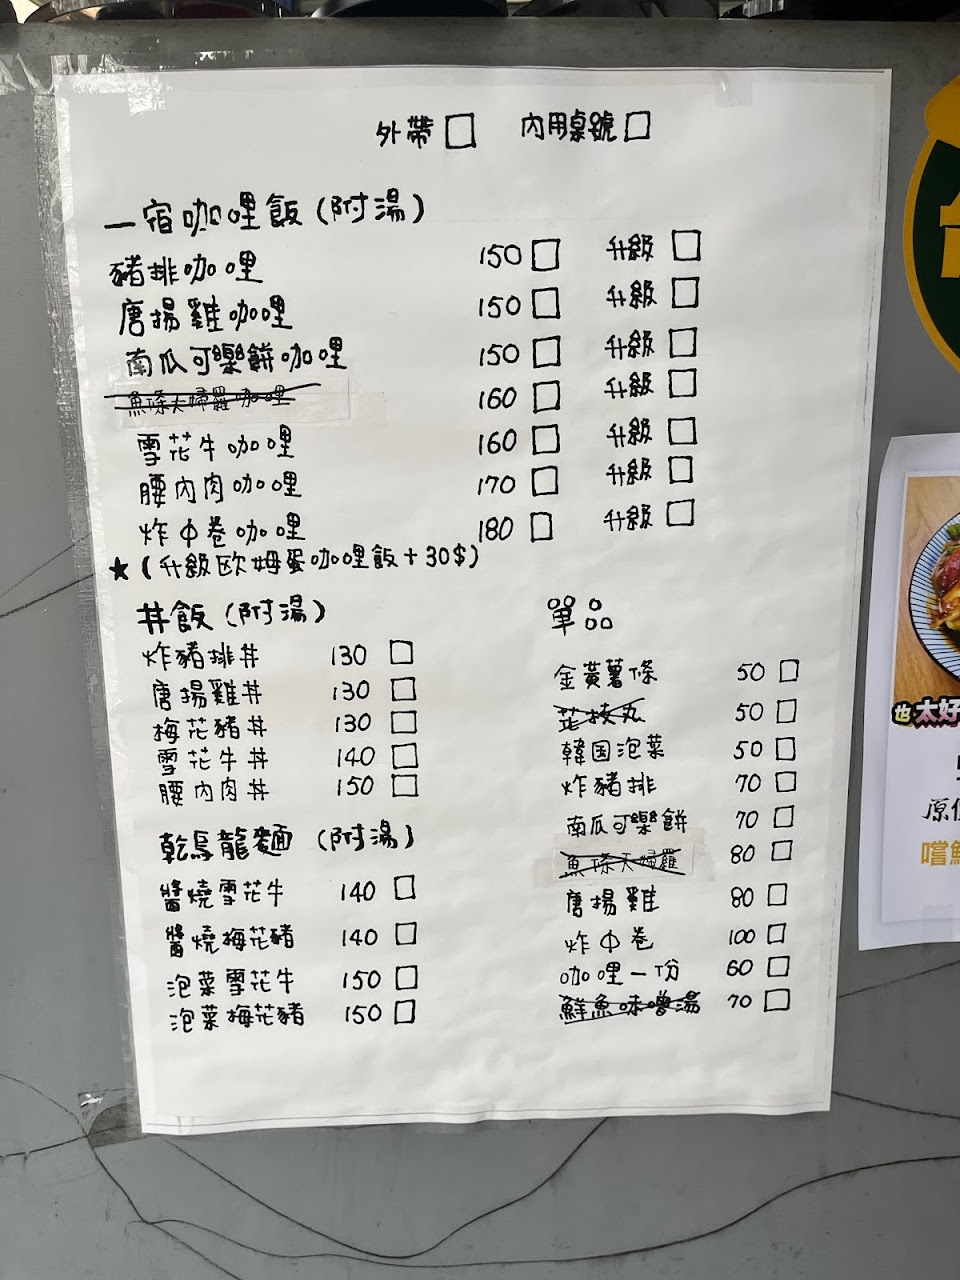 外帶□ 內用桌號□
一宿咖哩飯(附湯)
豬排咖哩 150□ 升級□
唐揚雞咖哩 150□ 升級□
南瓜可樂餅咖哩 150□ 升級□
魚條天婦羅咖哩 160□ 升級□
雪花牛咖哩 160□ 升級□
腰內肉咖哩 170□ 升級□
炸中卷咖哩 180□ 升級□
★(升級歐姆蛋咖哩飯+30$)
丼飯(附湯)
炸豬排丼 130□
唐揚雞丼 130□
梅花豬丼 130□
雪花牛丼 140□
腰內肉丼 150□
乾烏龍麵(附湯)
醬燒雪花牛 140□
醬燒梅花豬 140□
泡菜雪花牛 150□
泡菜梅花豬 150□
單品
金黃薯條 50□
芝枝丸 50□
韓国泡菜 50□
炸豬排 70□
南瓜可樂餅 70□
魚條天婦羅 80□
唐揚雞 80□
炸中卷 100□
咖哩一份 60□
鮮魚味噌湯 70□
也太好